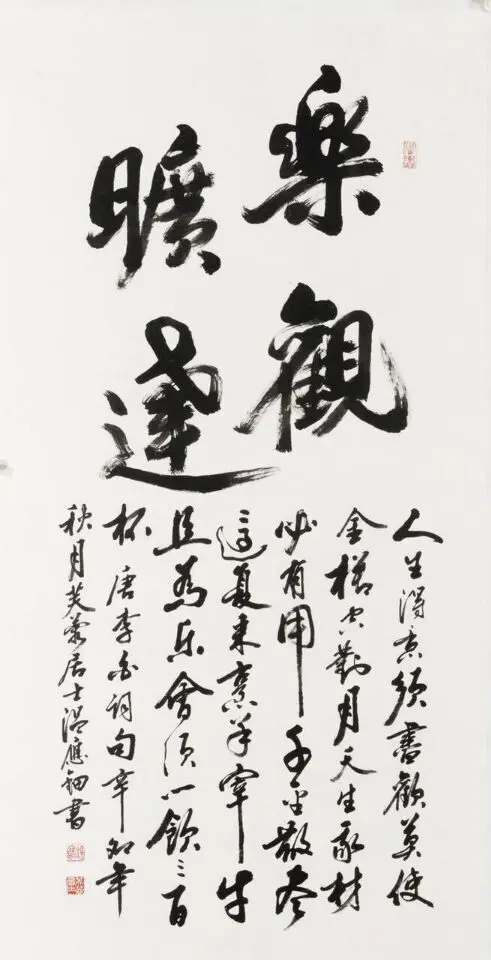 樂觀
曠達
人生得意須盡歡莫使
金樽空對月天生我材
必有用千金散盡
還復來烹羊宰牛
且為乐會须一飲三百
杯 唐李白詞句辛卯年
秋月芙蓉居士温應書